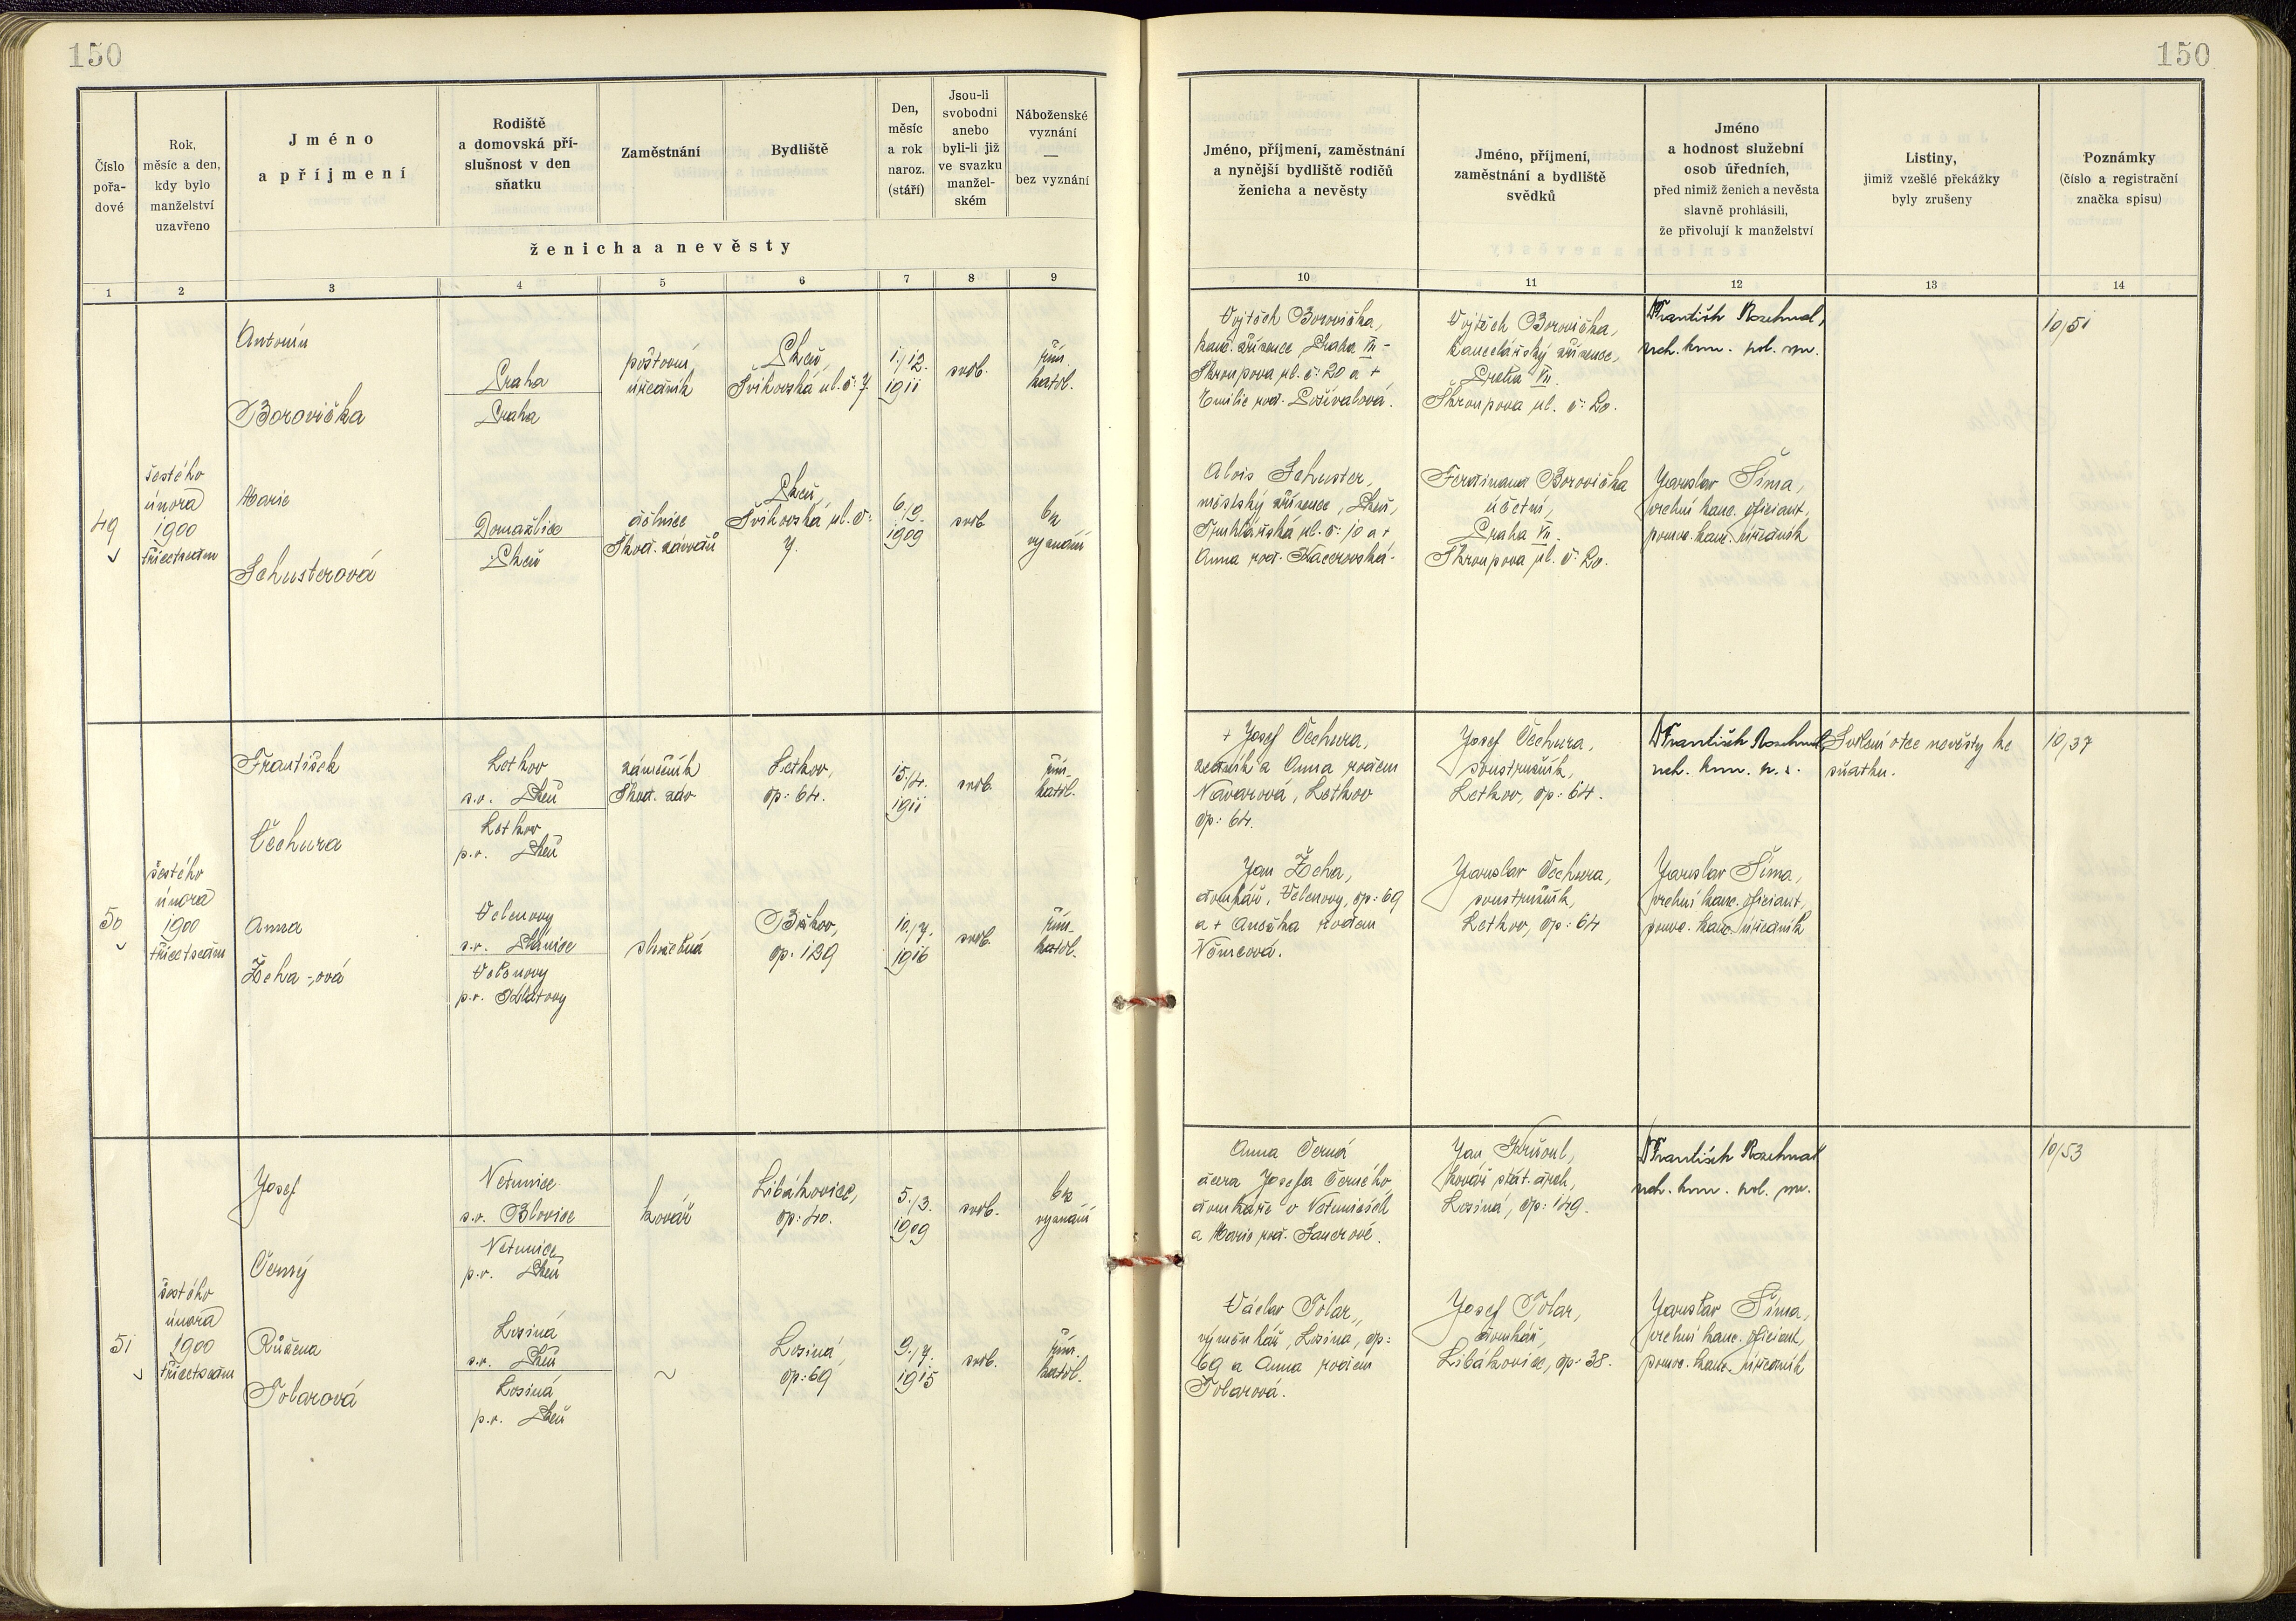 150
150
Číslo
pořa-
dové
Rok,
měsíc a den,
kdy bylo
manželství
uzavřeno
Jméno
a příjmení
Rodiště
a domovská pří-
slušnost v den
sňatku
Zaměstnání
Bydliště
Den,
měsíc
a rok
naroz.
(stáří)
Jsou-li
svobodni
anebo
byli-li již
ve svazku
manžel-
ském
Náboženské
vyznání
—
bez vyznání
ženicha a nevěsty
Jméno, příjmení, zaměstnání
a nynější bydliště rodičů
ženicha a nevěsty
Jméno, příjmení,
zaměstnání a bydliště
svědků
Jméno
a hodnost služební
osob úředních,
před nimiž ženich a nevěsta
slavně prohlásili,
že přivolují k manželství
Listiny,
jimiž vzešlé překážky
byly zrušeny
Poznámky
(číslo a registrační
značka spisu)
1 2 3 4 5 6 7 8 9
10 11 12 13 14
49
šestého
února
1900
třicetsedm
Antonín
Borovička
Praha
Praha
poštovní
úředník
Plzeň,
Švihovská ul. č: 7.
1./12.
1911
svob.
řím.
katol.
Vojtěch Borovička,
kanc. zřízenec Praha VII -
Škroupova ul. č: 20 a +
Emilie roz.
Vojtěch Borovička,
kancelářský zřízenec,
Praha VII.
Škroupova ul. č: 20.
František
10/51
Marie
Schusterová
Domažlice
Plzeň
dělnice
Škod. závodů
Plzeň,
Švihovská ul. č:
7.
6./9.
1909
svob.
bz
vyznání
Alois Schuster,
městský zřízenec, Plzeň,
Truhlářská ul. č: 10 a +
Anna roz. Kacerovská.
Ferdinand Borovička
účetní,
Praha VII.
Škroupova ul. č: 20.
Jaroslav Šíma,
vrchní kanc. oficiant,
pomoc. kanc. úředník
50
šestého
února
1900
třicetsedm
František
Čechura
Letkov
s.o. Plzeň
Letkov
p.o. Plzeň
zámečník
Škod. záv.
Letkov,
čp: 64.
15./4.
1911
svob.
řím.
katol.
+ Josef Čechura,
zedník a Anna rozem
Navarová, Letkov
čp: 64.
Josef Čechura,
soustružník,
Letkov, čp: 64.
František
Svolení otce nevěsty ke
sňatku.
10/37
Anna
Žeha -ová
Velenovy
s.o. Plánice
Velenovy
p.o. Klatovy
služebná
čp. 129
10./7.
1916
svob.
řím.
katol.
Jan Žeha,
domkář, Velenovy, čp: 69
a + Anežka rozem
Němcová.
Jaroslav Čechura,
soustružník,
Letkov, čp: 64
Jaroslav Šíma,
vrchní kanc. oficiant,
pomoc. kanc. úředník
51
šestého
února
1900
třicetsedm
Josef
Černý
Netunice
s.o. Blovice
Netunice
p.o. Plzeň
kovář
Libákovice,
čp: 40.
5./3.
1909
svob.
bz
vyznání
Anna Černá
dcera Josefa Černého,
domkáře v Netunicích
a Marie roz.
Jan
kovář stát. drah,
Losiná, čp: 149.
František
10/53
Růžena
Tolarová
Losiná
s.o. Plzeň
Losiná,
p.o. Plzeň
~
Losiná,
čp: 69
9./7.
1915
svob.
řím.
katol.
Václav Tolar,
výměnkář, Losina, čp:
69 a Anna rozem
Tolarová.
Josef Tolar,
domkář,
Libákovice, čp: 38.
Jaroslav Šíma,
vrchní kanc. oficiant,
pomoc. kanc. úředník